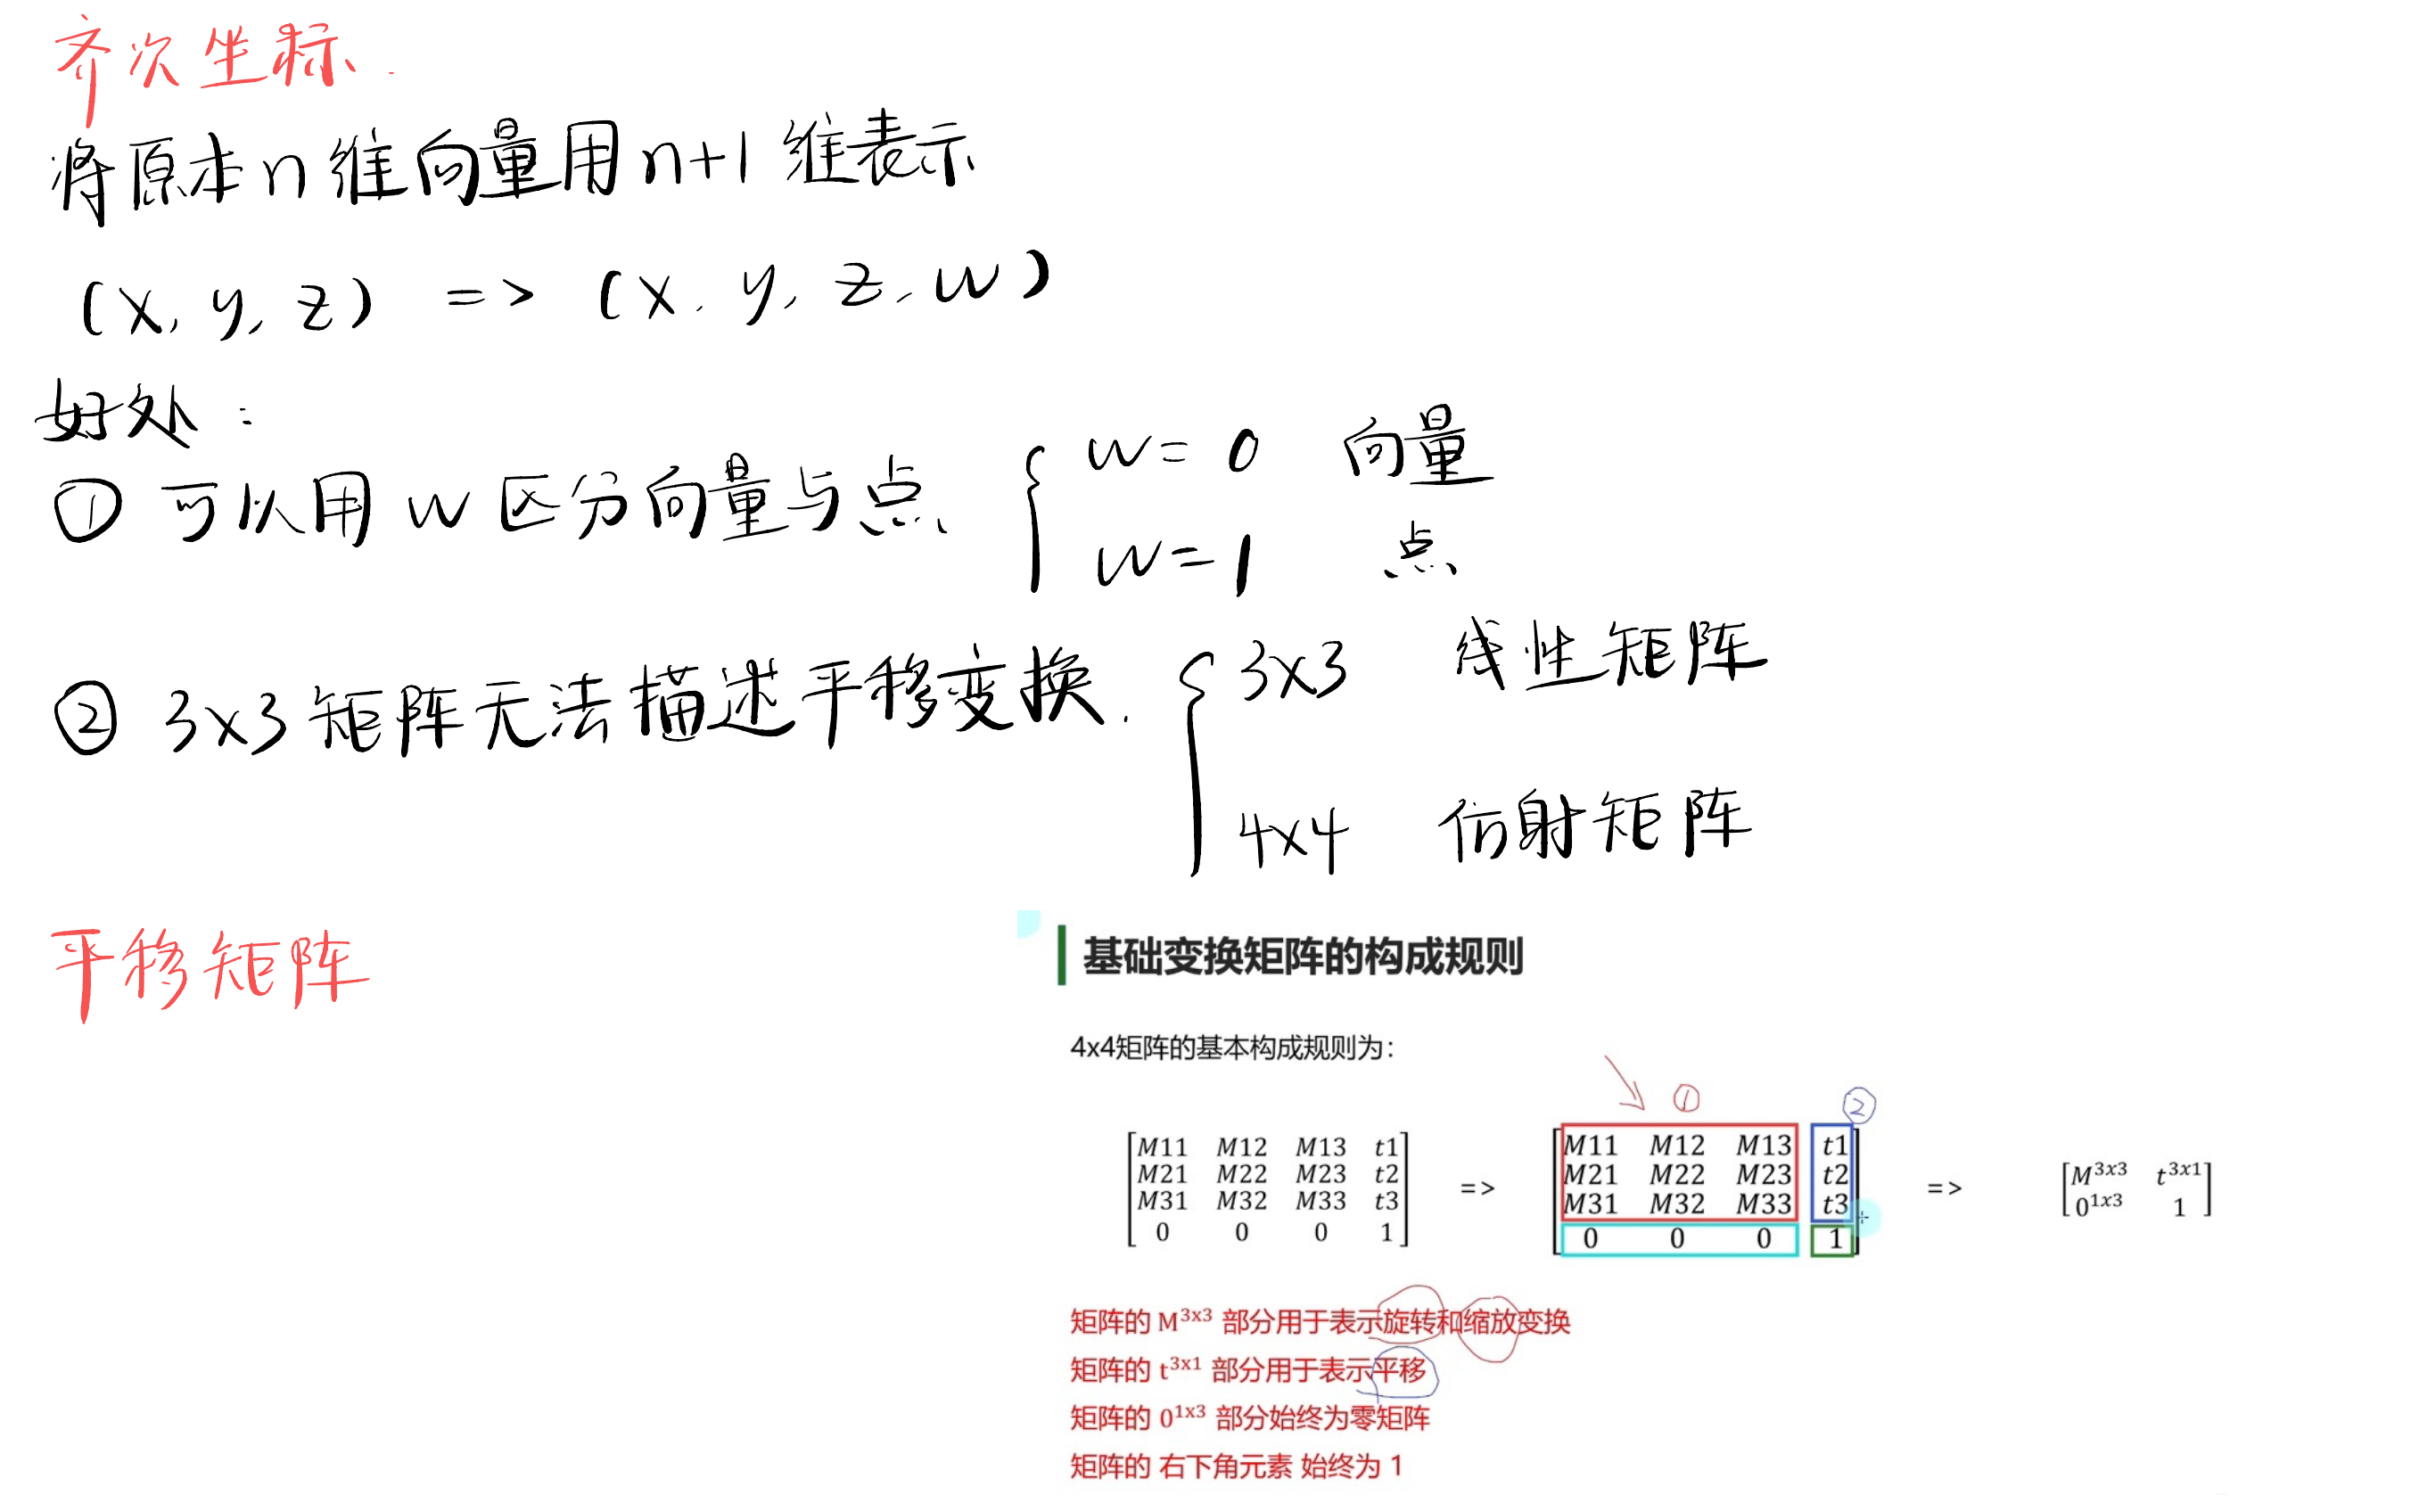 齐次坐标.
将原本n维向量用n+1维表示
(x, y, z) => (x, y, z, w)
好处:
① 可以用w区分向量与点 { w=0 向量
w=1 点
② 3x3矩阵无法描述平移变换. { 3x3 线性矩阵
4x4 仿射矩阵
平移矩阵
基础变换矩阵的构成规则
4x4矩阵的基本构成规则为:
① ②
M11 M12 M13 t1 M11 M12 M13 t1
M21 M22 M23 t2 => M21 M22 M23 t2 => M^3x3 t^3x1
M31 M32 M33 t3 M31 M32 M33 t3 0^1x3 1
0 0 0 1 0 0 0 1
矩阵的 M^3x3 部分用于表示旋转和缩放变换
矩阵的 t^3x1 部分用于表示平移
矩阵的 0^1x3 部分始终为零矩阵
矩阵的 右下角元素 始终为 1